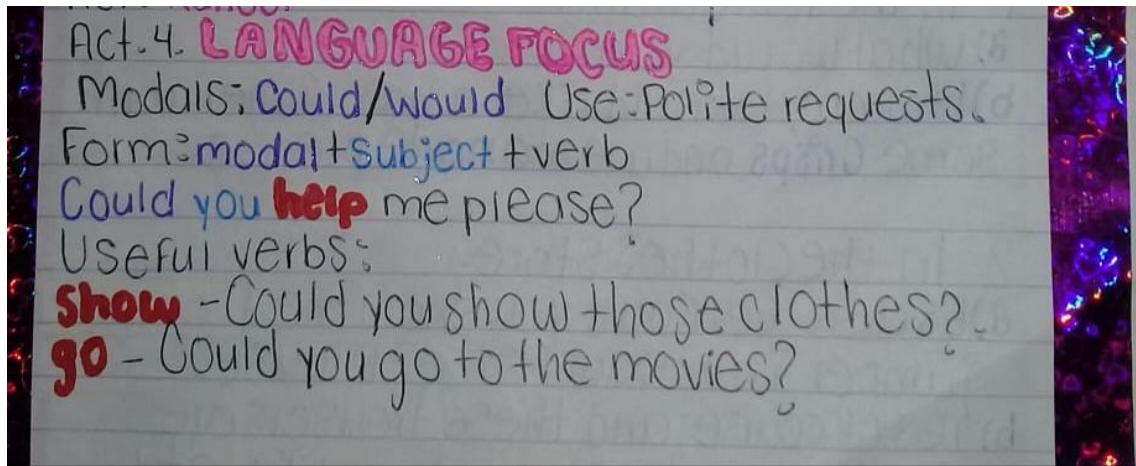 Act.4. LANGUAGE FOCUS
Modals: Could/Would Use: Polite requests.
Form: modal + subject + verb
Could you help me please?
Useful verbs:
Show - Could you show those clothes?
go - Could you go to the movies?